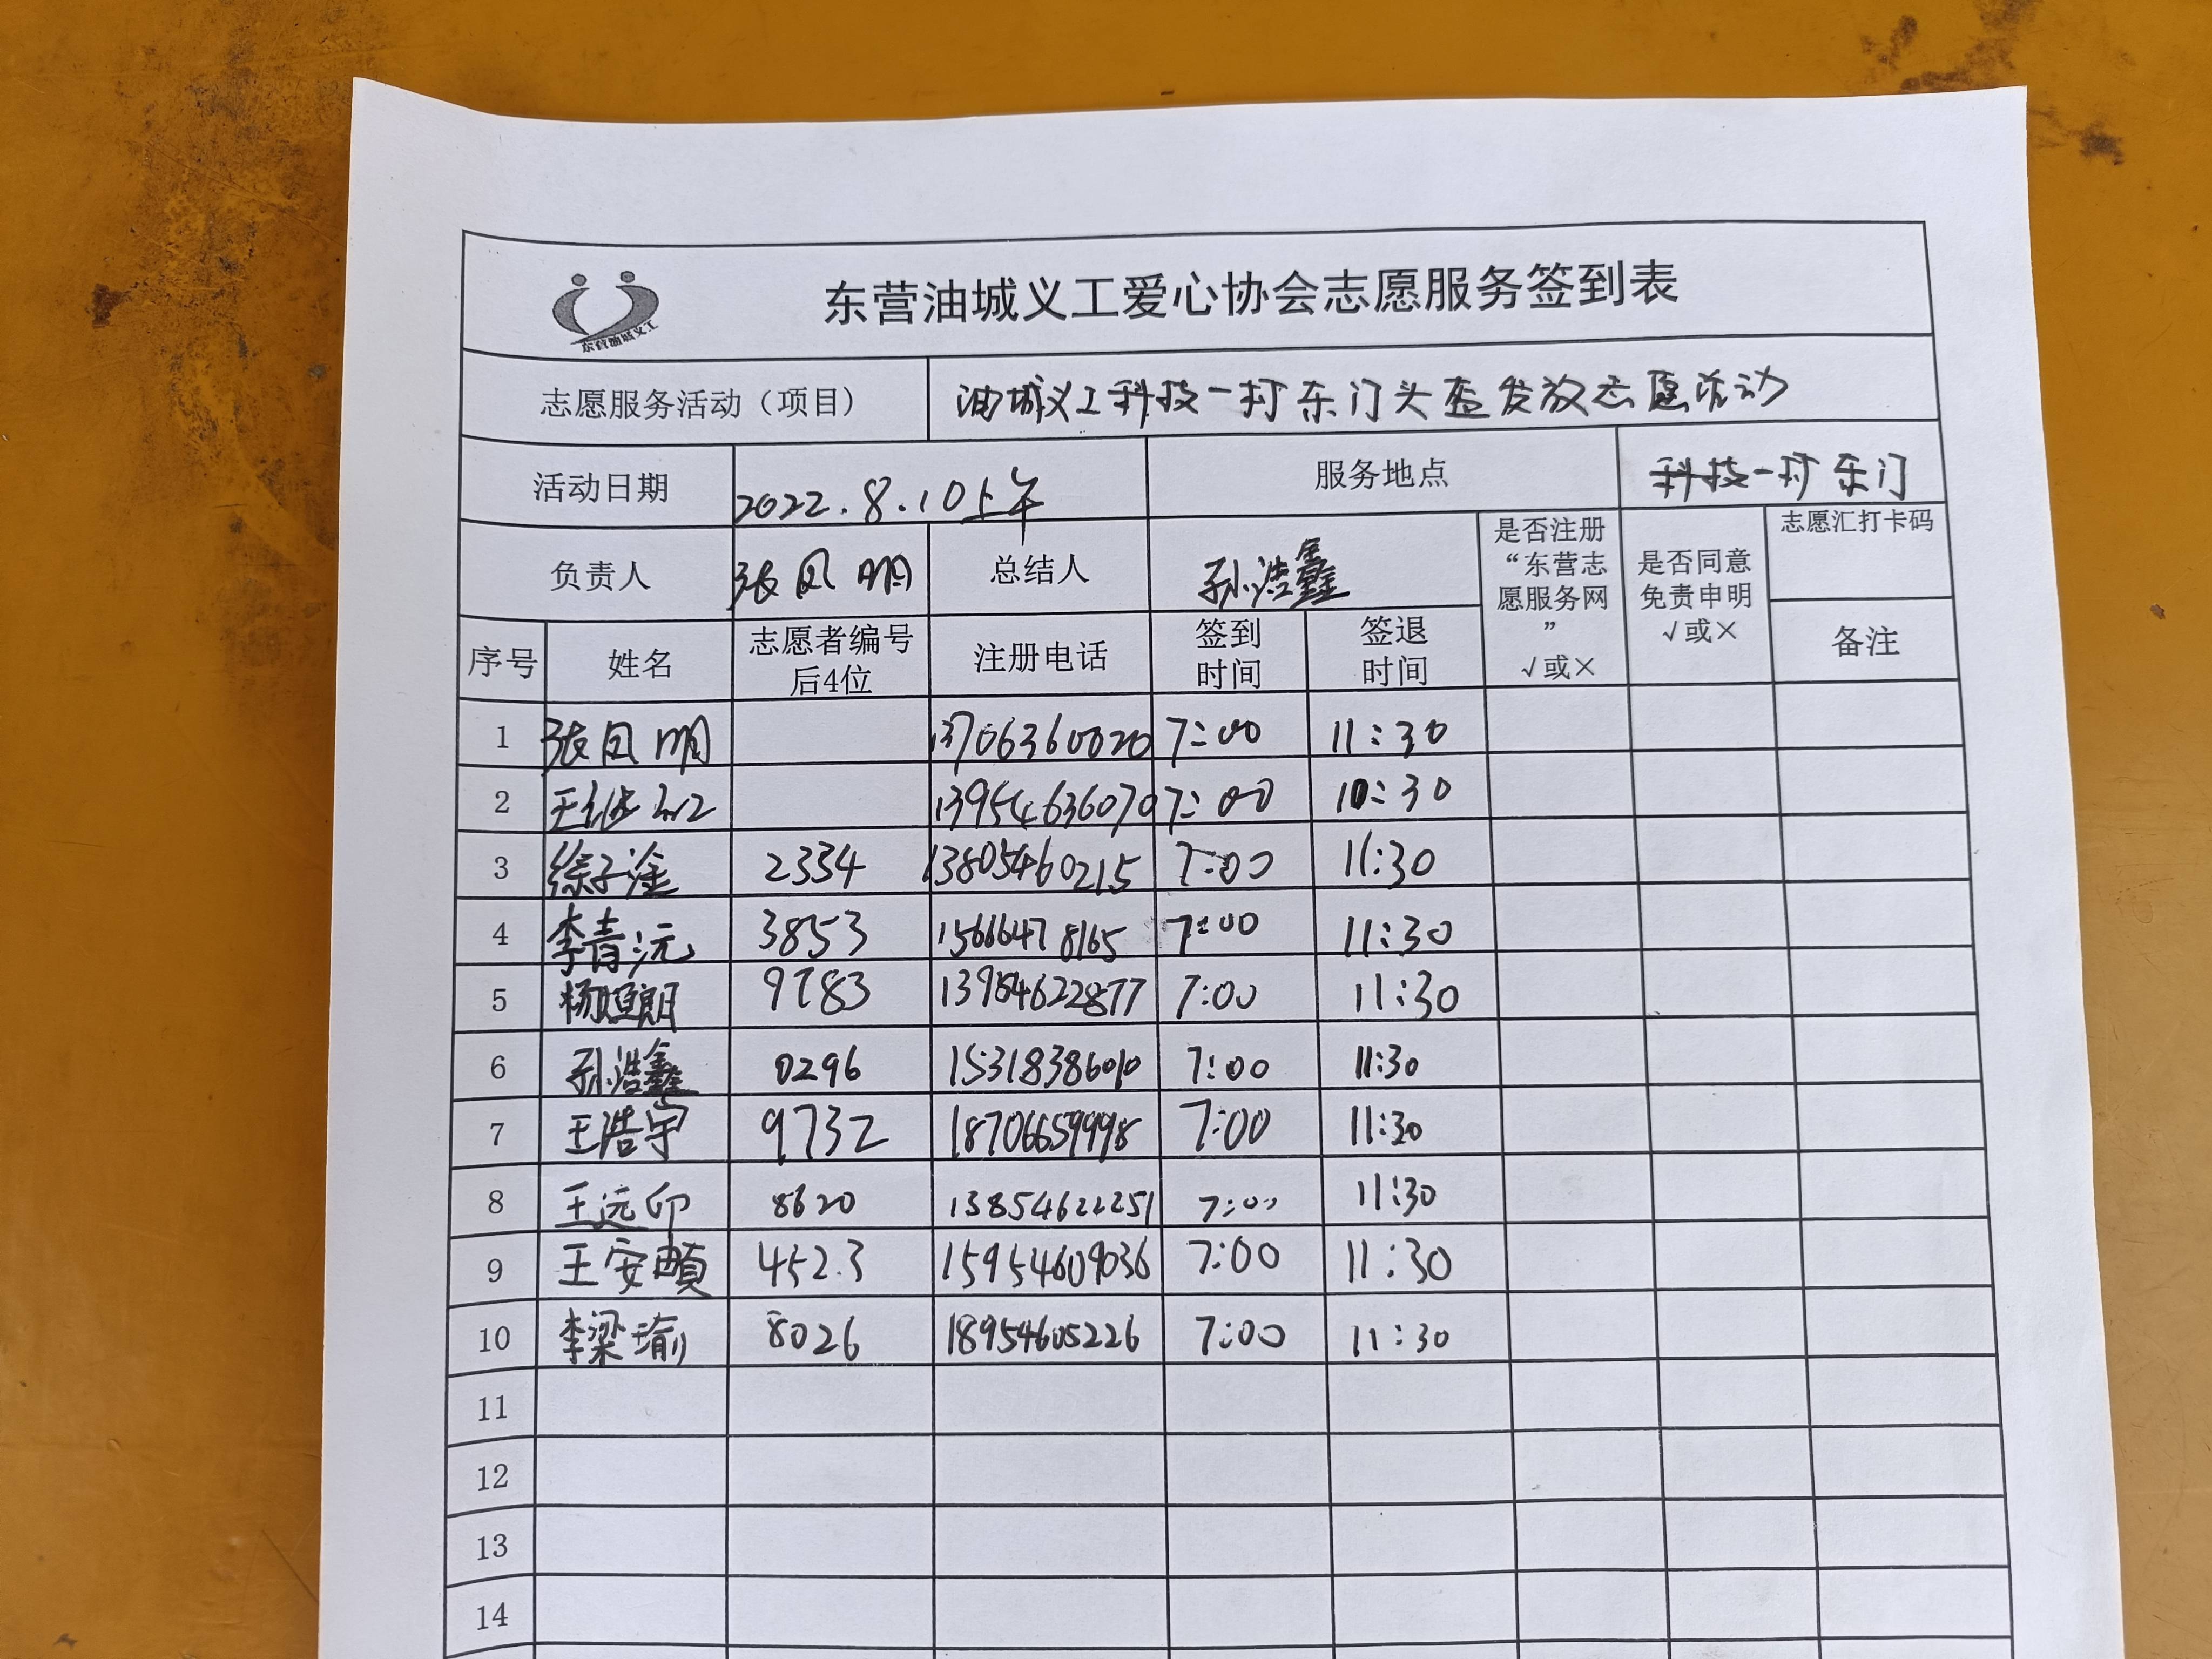 东营油城义工
东营油城义工爱心协会志愿服务签到表
志愿服务活动（项目） 油城义工科技一村东门头盔发放志愿活动
活动日期 2022.8.10上午 服务地点 科技一村东门
负责人 张凤明 总结人 孙浩鑫 是否注册“东营志愿服务网”√或× 是否同意免责申明√或× 志愿汇打卡码
序号 姓名 志愿者编号后4位 注册电话 签到时间 签退时间 备注
1 张凤明 13706360020 7:00 11:30
2 13954636070 7:00 10:30
3 徐子淦 2334 13805460215 7:00 11:30
4 李青沅 3853 15666478165 7:00 11:30
5 9783 13954622877 7:00 11:30
6 孙浩鑫 0296 15318386010 7:00 11:30
7 王浩宇 9732 18706659998 7:00 11:30
8 王远卬 8620 13854622251 7:00 11:30
9 王安 4523 15954609036 7:00 11:30
10 李梁瑜 8026 18954605226 7:00 11:30
11
12
13
14